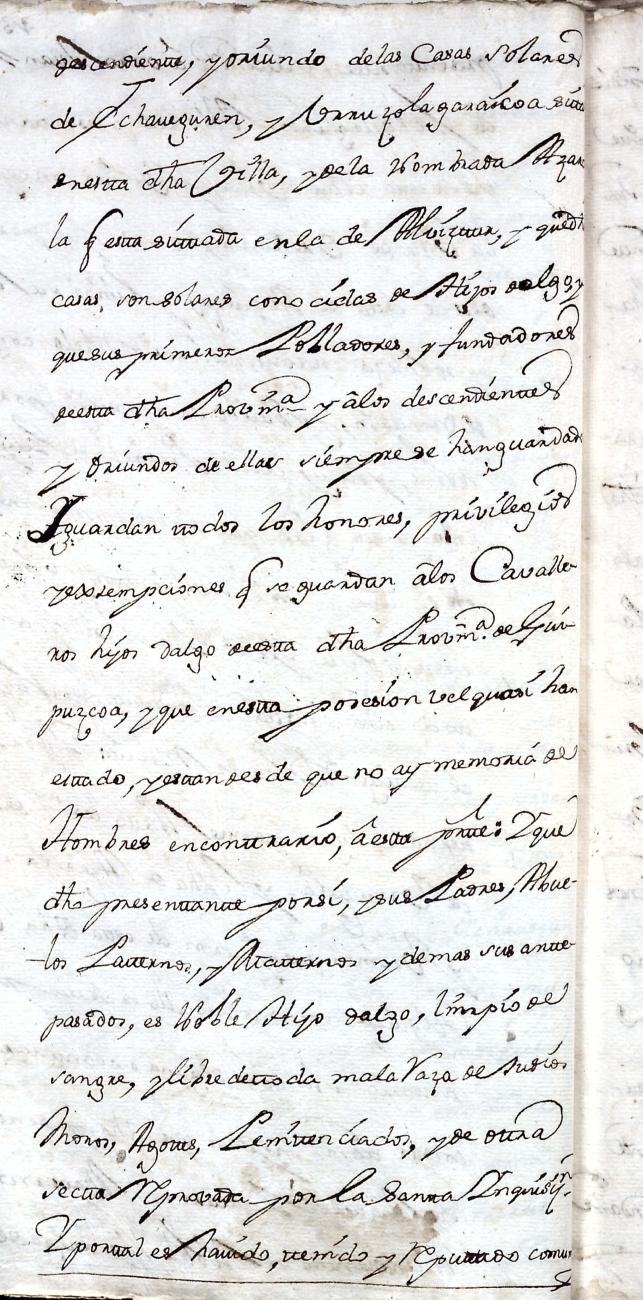 descendiente, y oriundo de las Casas Solares
de Echaveguren, y Urruzolagaraicoa sitta
enestta dha Villa, y de la Nombrada Arza
la q estta sittuada enla de Alviztur, y quedhs
casas, son solares conocidas de Hijos dalgo, y
que sus primeros Pobladores, y fundadores
deestta dha Provinª y âlos descendienttes
y Oriundos de ellas siempre se hanguardado
Yguardan ttodos los honores, privilegios
yexsempciones q se guardan âlos Cavalle-
ros hijos dalgo deestta dha Provª. de Gui-
puzcoa, y que enestta posesion velquasi han
esttado, yesttan desde que no ay memoria de
Hombres enconttrario, â estta partte: Yque
dho presenttantte porsi, y sus Padres, Abue-
los Patternos, y Matternos y demas sus antte-
pasados, es Noble Hijo dalgo, limpio de
sangre, y libre dettoda mala Raza de Judios
Moros, Agottes, Penittenciados, y de ottra
sectta Reprovada por la Santta Inquisiⁿ.
Y porttal es havido, ttenido y Reputtado comun